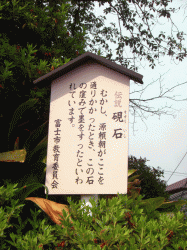 伝説 硯石
むかし、源頼朝がここを
通りかかったとき、この石
の窪みで墨をすったといわ
れています。
富士市教育委員会